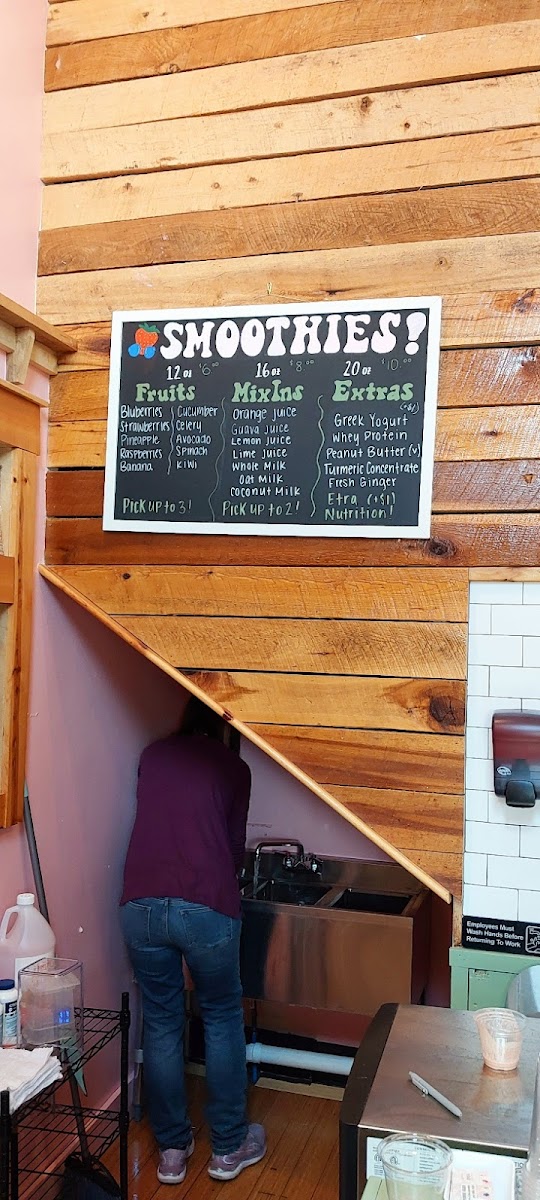 SMOOTHIES!
12 oz $6.00 16 oz $8.00 20 oz $10.00
Fruits
Bluberries
Strawberries
Pineapple
Raspberries
Banana
Cucumber
Celery
Avocado
Spinach
Kiwi
Pick up to 3!
MixIns
Orange juice
Guava Juice
Lemon Juice
Lime Juice
Whole Milk
Oat Milk
Coconut Milk
Pick up to 2!
Extras
(+$1)
Greek Yogurt
Whey Protein
Peanut Butter (v)
Turmeric Concentrate
Fresh Ginger
Etra (+$1)
Nutrition!
Employees Must
Wash Hands Before
Returning To Work